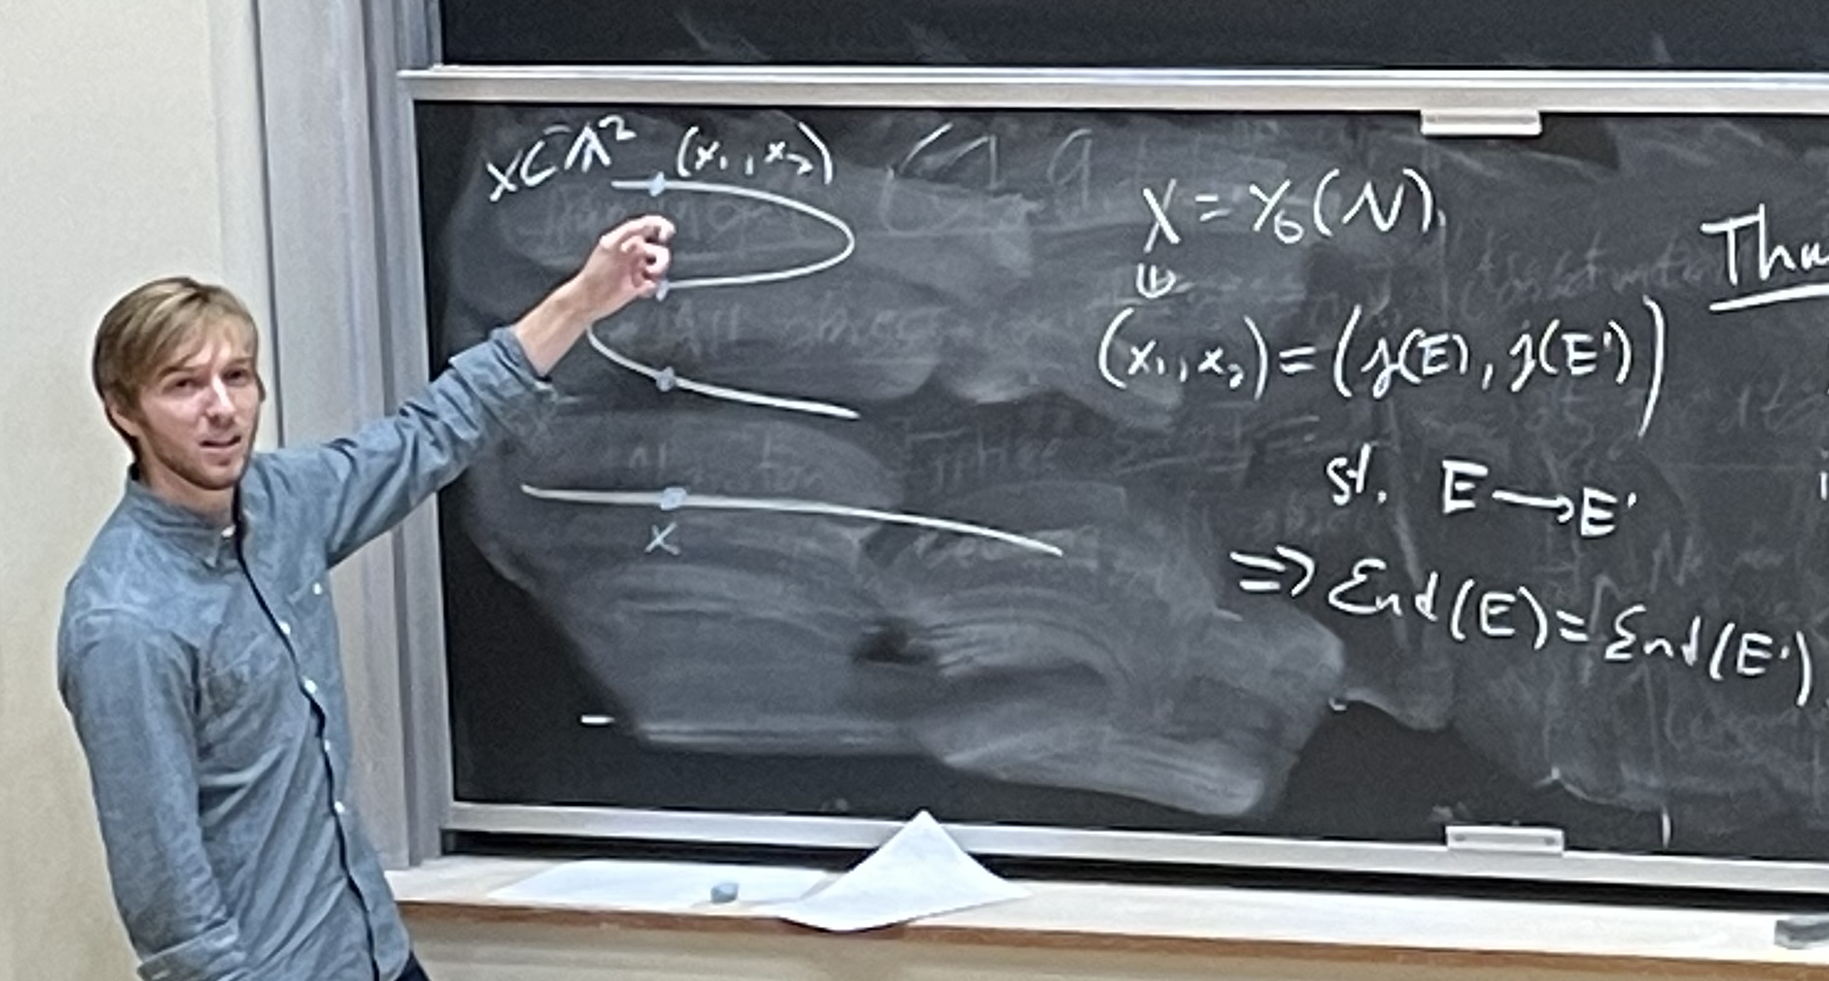 X⊂𝔸² (x₁, x₂)
x
X = Y₀(N).
(x₁, x₂) = (j(E), j(E'))
st. E ⟶ E'
⇒ End(E) = End(E')